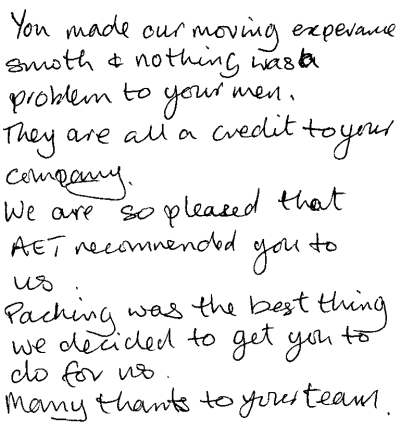 You made our moving experance
smoth & nothing was a
problem to your men.
They are all a credit to your
company.
We are so pleased that
AET recomnended you to
us.
Packing was the best thing
we decided to get you to
do for us.
Many thanks to your team.